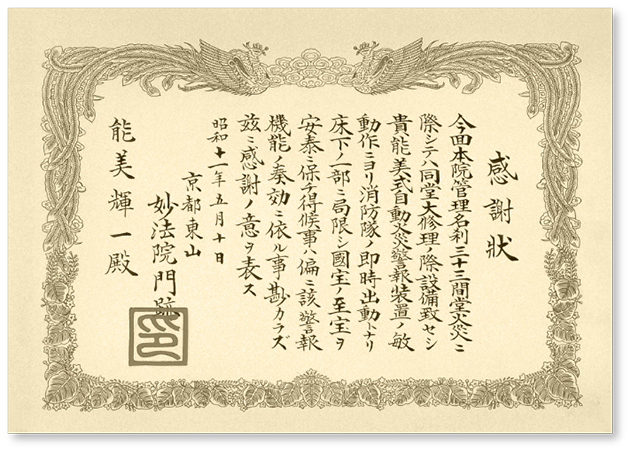 感謝狀
今回本院管理名刹三十三間堂火災ニ
際シテハ同堂大修理ノ際設備致セシ
貴能美式自動火災警報装置ノ敏
動作ニヨリ消防隊ノ即時出動トナリ
床下ノ一部ニ局限シ國宝ノ至宝ヲ
安泰ニ保チ得候事ハ偏ニ該警報
機能ノ奏効ニ依ル事尠カラズ
茲ニ感謝ノ意ヲ表ス
昭和十一年五月十日
京都東山
妙法院門跡
能美輝一殿
印